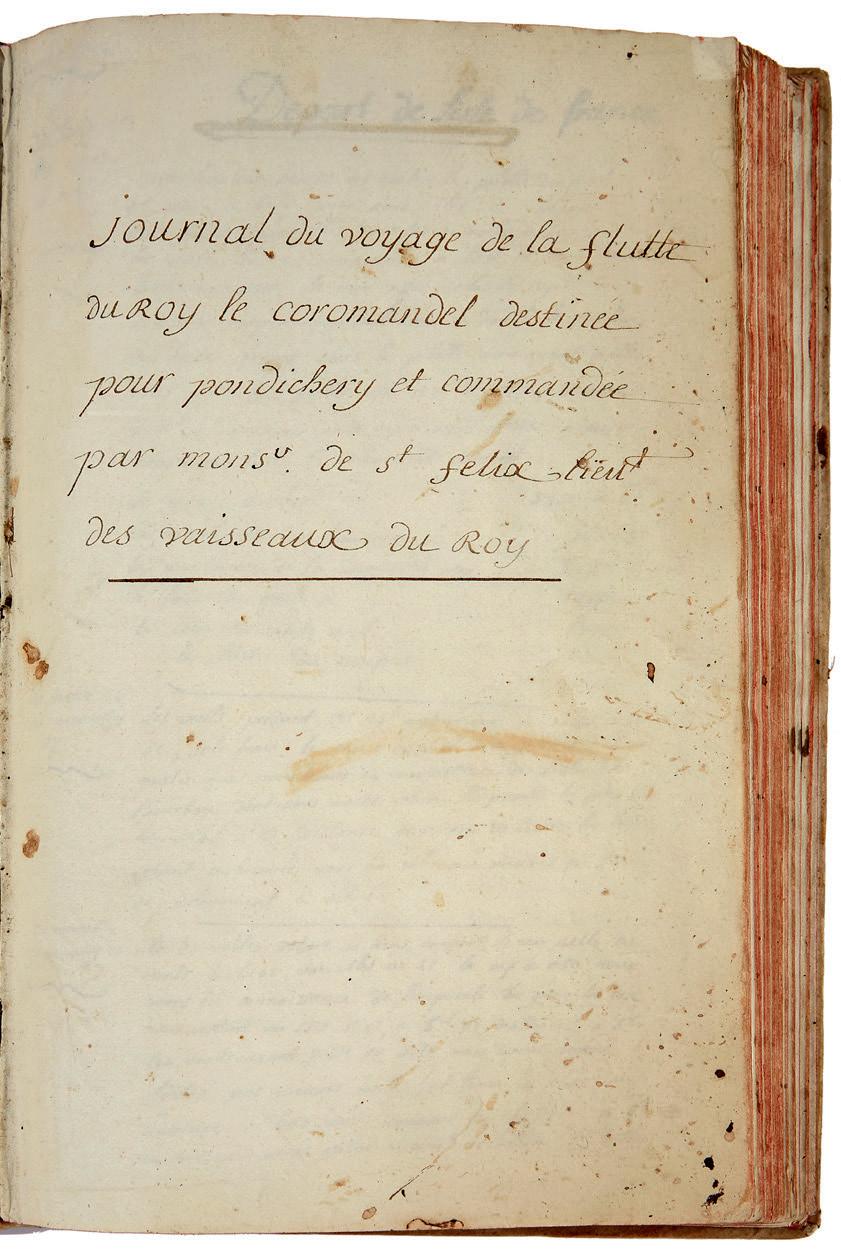 journal du voyage de la flutte
du Roy le coromandel destinée
pour pondichery et commandée
par monsr. de st felix lieut
des vaisseaux du Roy